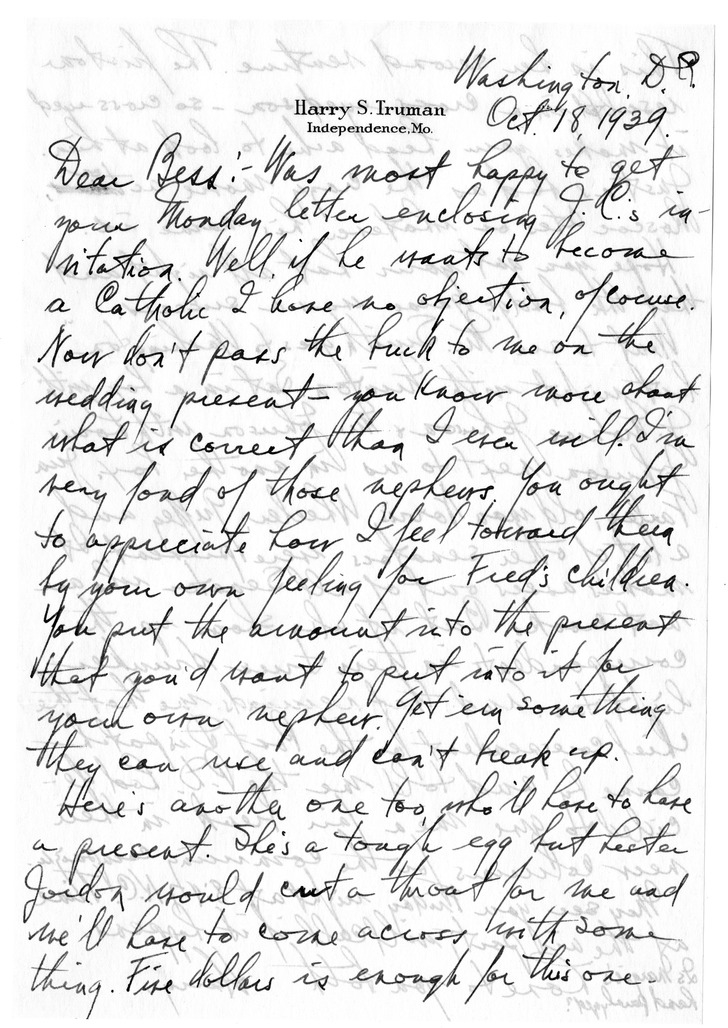 Washington, D.C.
Harry S. Truman
Independence, Mo.
Oct. 18, 1939.
Dear Bess:- Was most happy to get
your Monday letter enclosing J.C.'s in-
vitation. Well, if he wants to become
a Catholic I have no objection, of course.
Now don't pass the buck to me on the
wedding present - you know more about
what is correct than I ever will. I'm
very fond of those nephews. You ought
to appreciate how I feel toward them
by your own feeling for Fred's children.
You put the amount into the present
that you'd want to put into it for
your own nephew. Get 'em something
they can use and can't break up.
Here's another one too, who'll have to have
a present. She's a tough egg but Lester
Jordon would cut a throat for me and
we'll have to come across with some
thing. Five dollars is enough for this one.